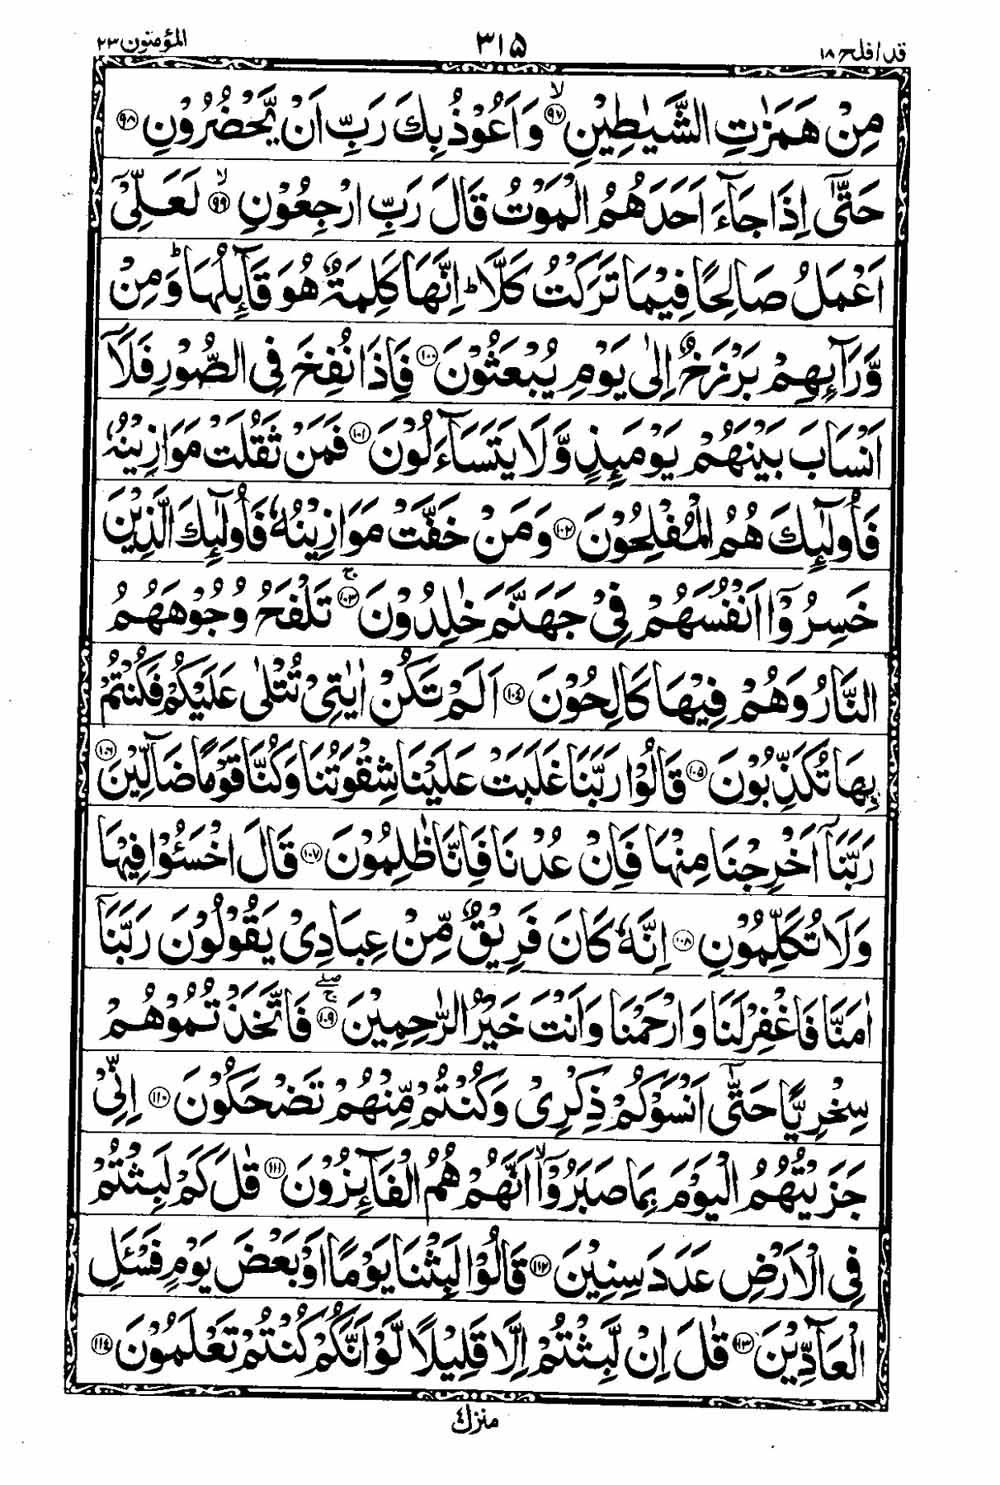 قد افلح ۱۸ ۳۱۵ المؤمنون ۲۳
مِنْ هَمَزٰتِ الشَّيٰطِيْنِ ۙ﴿۹۷﴾ وَاَعُوْذُ بِكَ رَبِّ اَنْ يَّحْضُرُوْنِ ﴿۹۸﴾
حَتّٰٓى اِذَا جَآءَ اَحَدَهُمُ الْمَوْتُ قَالَ رَبِّ ارْجِعُوْنِ ۙ﴿۹۹﴾ لَعَلِّيْٓ
اَعْمَلُ صَالِحًا فِيْمَا تَرَكْتُ كَلَّا ؕ اِنَّهَا كَلِمَةٌ هُوَ قَآئِلُهَا ؕ وَمِنْ
وَّرَآئِهِمْ بَرْزَخٌ اِلٰى يَوْمِ يُبْعَثُوْنَ ﴿۱۰۰﴾ فَاِذَا نُفِخَ فِى الصُّوْرِ فَلَاۤ
اَنْسَابَ بَيْنَهُمْ يَوْمَئِذٍ وَّلَا يَتَسَآءَلُوْنَ ﴿۱۰۱﴾ فَمَنْ ثَقُلَتْ مَوَازِيْنُهٗ
فَاُولٰٓئِكَ هُمُ الْمُفْلِحُوْنَ ﴿۱۰۲﴾ وَمَنْ خَفَّتْ مَوَازِيْنُهٗ فَاُولٰٓئِكَ الَّذِيْنَ
خَسِرُوْٓا اَنْفُسَهُمْ فِيْ جَهَنَّمَ خٰلِدُوْنَ ۚ﴿۱۰۳﴾ تَلْفَحُ وُجُوْهَهُمُ
النَّارُ وَهُمْ فِيْهَا كَالِحُوْنَ ﴿۱۰٤﴾ اَلَمْ تَكُنْ اٰيٰتِيْ تُتْلٰى عَلَيْكُمْ فَكُنْتُمْ
بِهَا تُكَذِّبُوْنَ ﴿۱۰۵﴾ قَالُوْا رَبَّنَا غَلَبَتْ عَلَيْنَا شِقْوَتُنَا وَكُنَّا قَوْمًا ضَآلِّيْنَ ﴿۱۰۶﴾
رَبَّنَاۤ اَخْرِجْنَا مِنْهَا فَاِنْ عُدْنَا فَاِنَّا ظٰلِمُوْنَ ﴿۱۰۷﴾ قَالَ اخْسَئُوْا فِيْهَا
وَلَا تُكَلِّمُوْنِ ﴿۱۰۸﴾ اِنَّهٗ كَانَ فَرِيْقٌ مِّنْ عِبَادِيْ يَقُوْلُوْنَ رَبَّنَاۤ
اٰمَنَّا فَاغْفِرْ لَنَا وَارْحَمْنَا وَاَنْتَ خَيْرُ الرّٰحِمِيْنَ ۚۖ﴿۱۰۹﴾ فَاتَّخَذْتُمُوْهُمْ
سِخْرِيًّا حَتّٰٓى اَنْسَوْكُمْ ذِكْرِيْ وَكُنْتُمْ مِّنْهُمْ تَضْحَكُوْنَ ﴿۱۱۰﴾ اِنِّيْ
جَزَيْتُهُمُ الْيَوْمَ بِمَا صَبَرُوْٓا ۙ اَنَّهُمْ هُمُ الْفَآئِزُوْنَ ﴿۱۱۱﴾ قٰلَ كَمْ لَبِثْتُمْ
فِى الْاَرْضِ عَدَدَ سِنِيْنَ ﴿۱۱۲﴾ قَالُوْا لَبِثْنَا يَوْمًا اَوْ بَعْضَ يَوْمٍ فَسْئَلِ
الْعَآدِّيْنَ ﴿۱۱۳﴾ قٰلَ اِنْ لَّبِثْتُمْ اِلَّا قَلِيْلًا لَّوْ اَنَّكُمْ كُنْتُمْ تَعْلَمُوْنَ ﴿۱۱٤﴾
منزل ٤